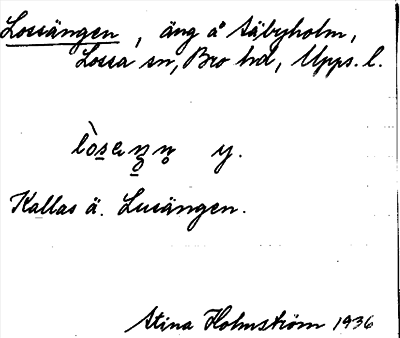 Lossängen, äng å Säbyholm,
Lossa sn, Bro hd, Upps. l.
y.
Kallas ä. Lusängen.
Stina Holmström 1936